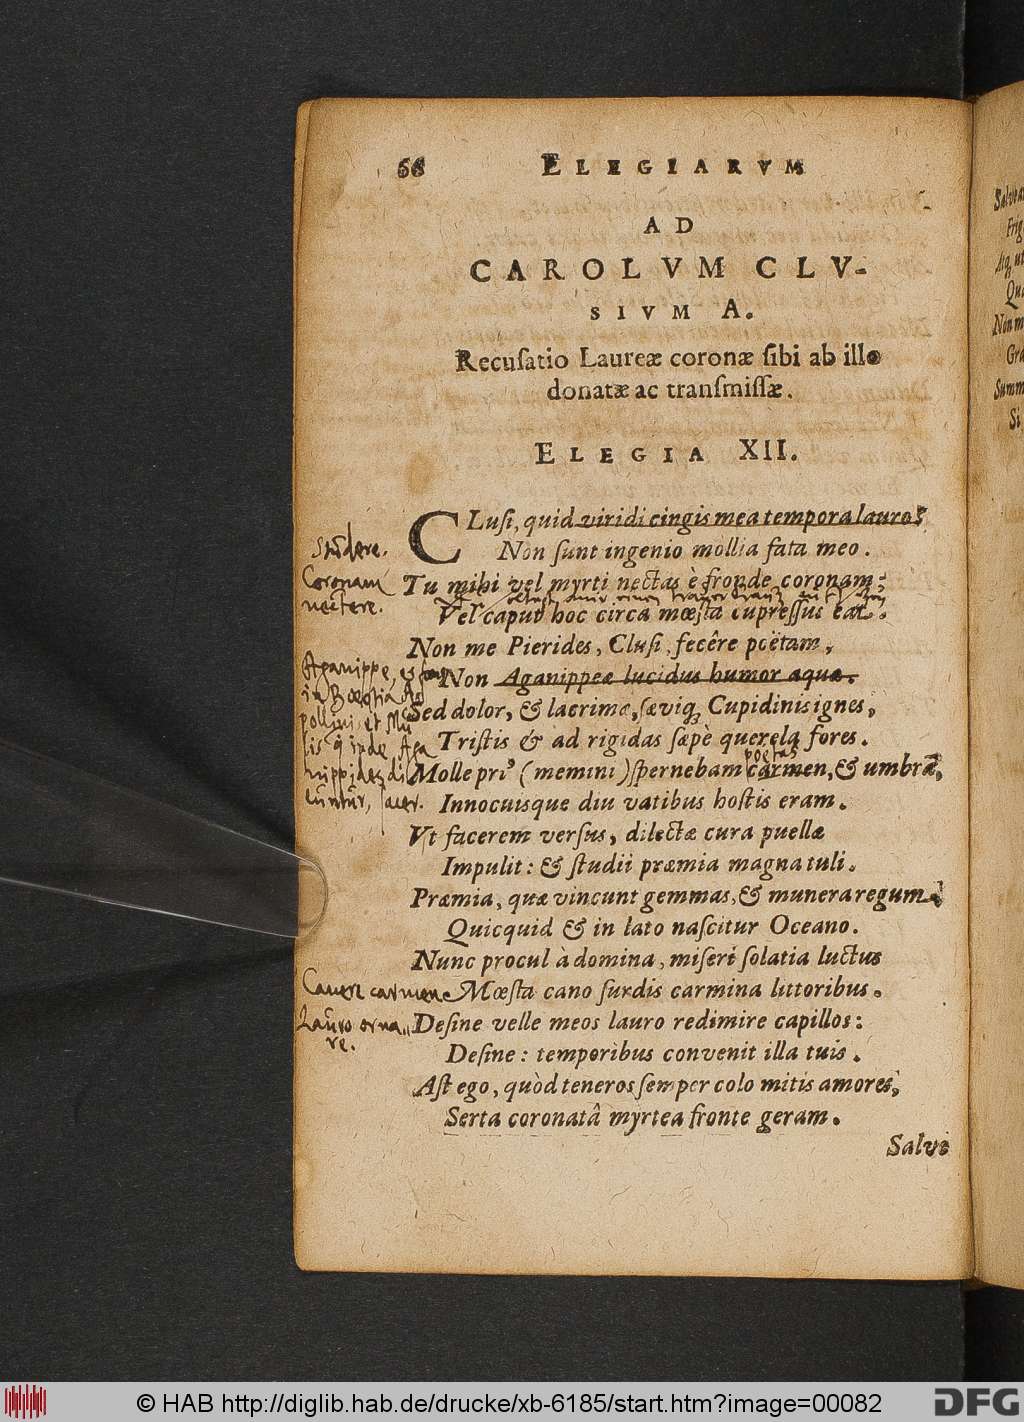 66 ELEGIARVM
AD
CAROLVM CLV-
SIVM A.
Recuſatio Laureæ coronæ ſibi ab illo
donatæ ac tranſmiſſæ.
ELEGIA XII.
CLuſi, quid viridi cingis mea tempora lauro?
Studere.
Non ſunt ingenio mollia fata meo.
Coronam
nectere.
Tu mihi vel myrti nectas è fronde coronam:
Vel caput hoc circa mœſta cupreſſus eat.
Non me Pierides, Cluſi, fecêre poëtam,
Aganippe,
in Bœotia
Non Aganippeæ lucidus humor aquæ.
Sed dolor, & lacrimæ, ſæviq; Cupidinis ignes,
Triſtis & ad rigidas ſæpè querela fores.
poëtas
Molle priꝰ (memini) ſpernebam carmen, & umbrā,
Innocuisque diu vatibus hoſtis eram.
Vt facerem verſus, dilectæ cura puellæ
Impulit: & ſtudii præmia magna tuli.
Præmia, quæ vincunt gemmas, & munera regum
Quicquid & in lato naſcitur Oceano.
Nunc procul à domina, miſeri ſolatia luctus
Canere carmen
Mœſta cano ſurdis carmina littoribus.
Lauro orna„
re.
Deſine velle meos lauro redimire capillos:
Deſine: temporibus convenit illa tuis.
Aſt ego, quòd teneros ſemper colo mitis amores,
Serta coronatâ myrtea fronte geram.
Salve
© HAB http://diglib.hab.de/drucke/xb-6185/start.htm?image=00082
DFG